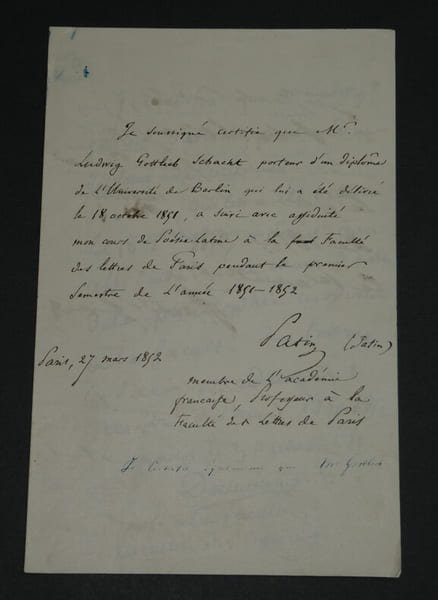 Je soussigné certifie que Mr.
Ludwig Gottlieb Schacht porteur d'un diplôme
de l'Université de Berlin qui lui a été délivré
le 18 octobre 1851, a suivi avec assiduité
mon cours de Poésie latine à la Faculté
des lettres de Paris pendant le premier
Semestre de L'année 1851-1852
Patin (Patin)
Paris, 27 mars 1852
membre de L'académie
française, Professeur à la
Faculté des Lettres de Paris
Je également que